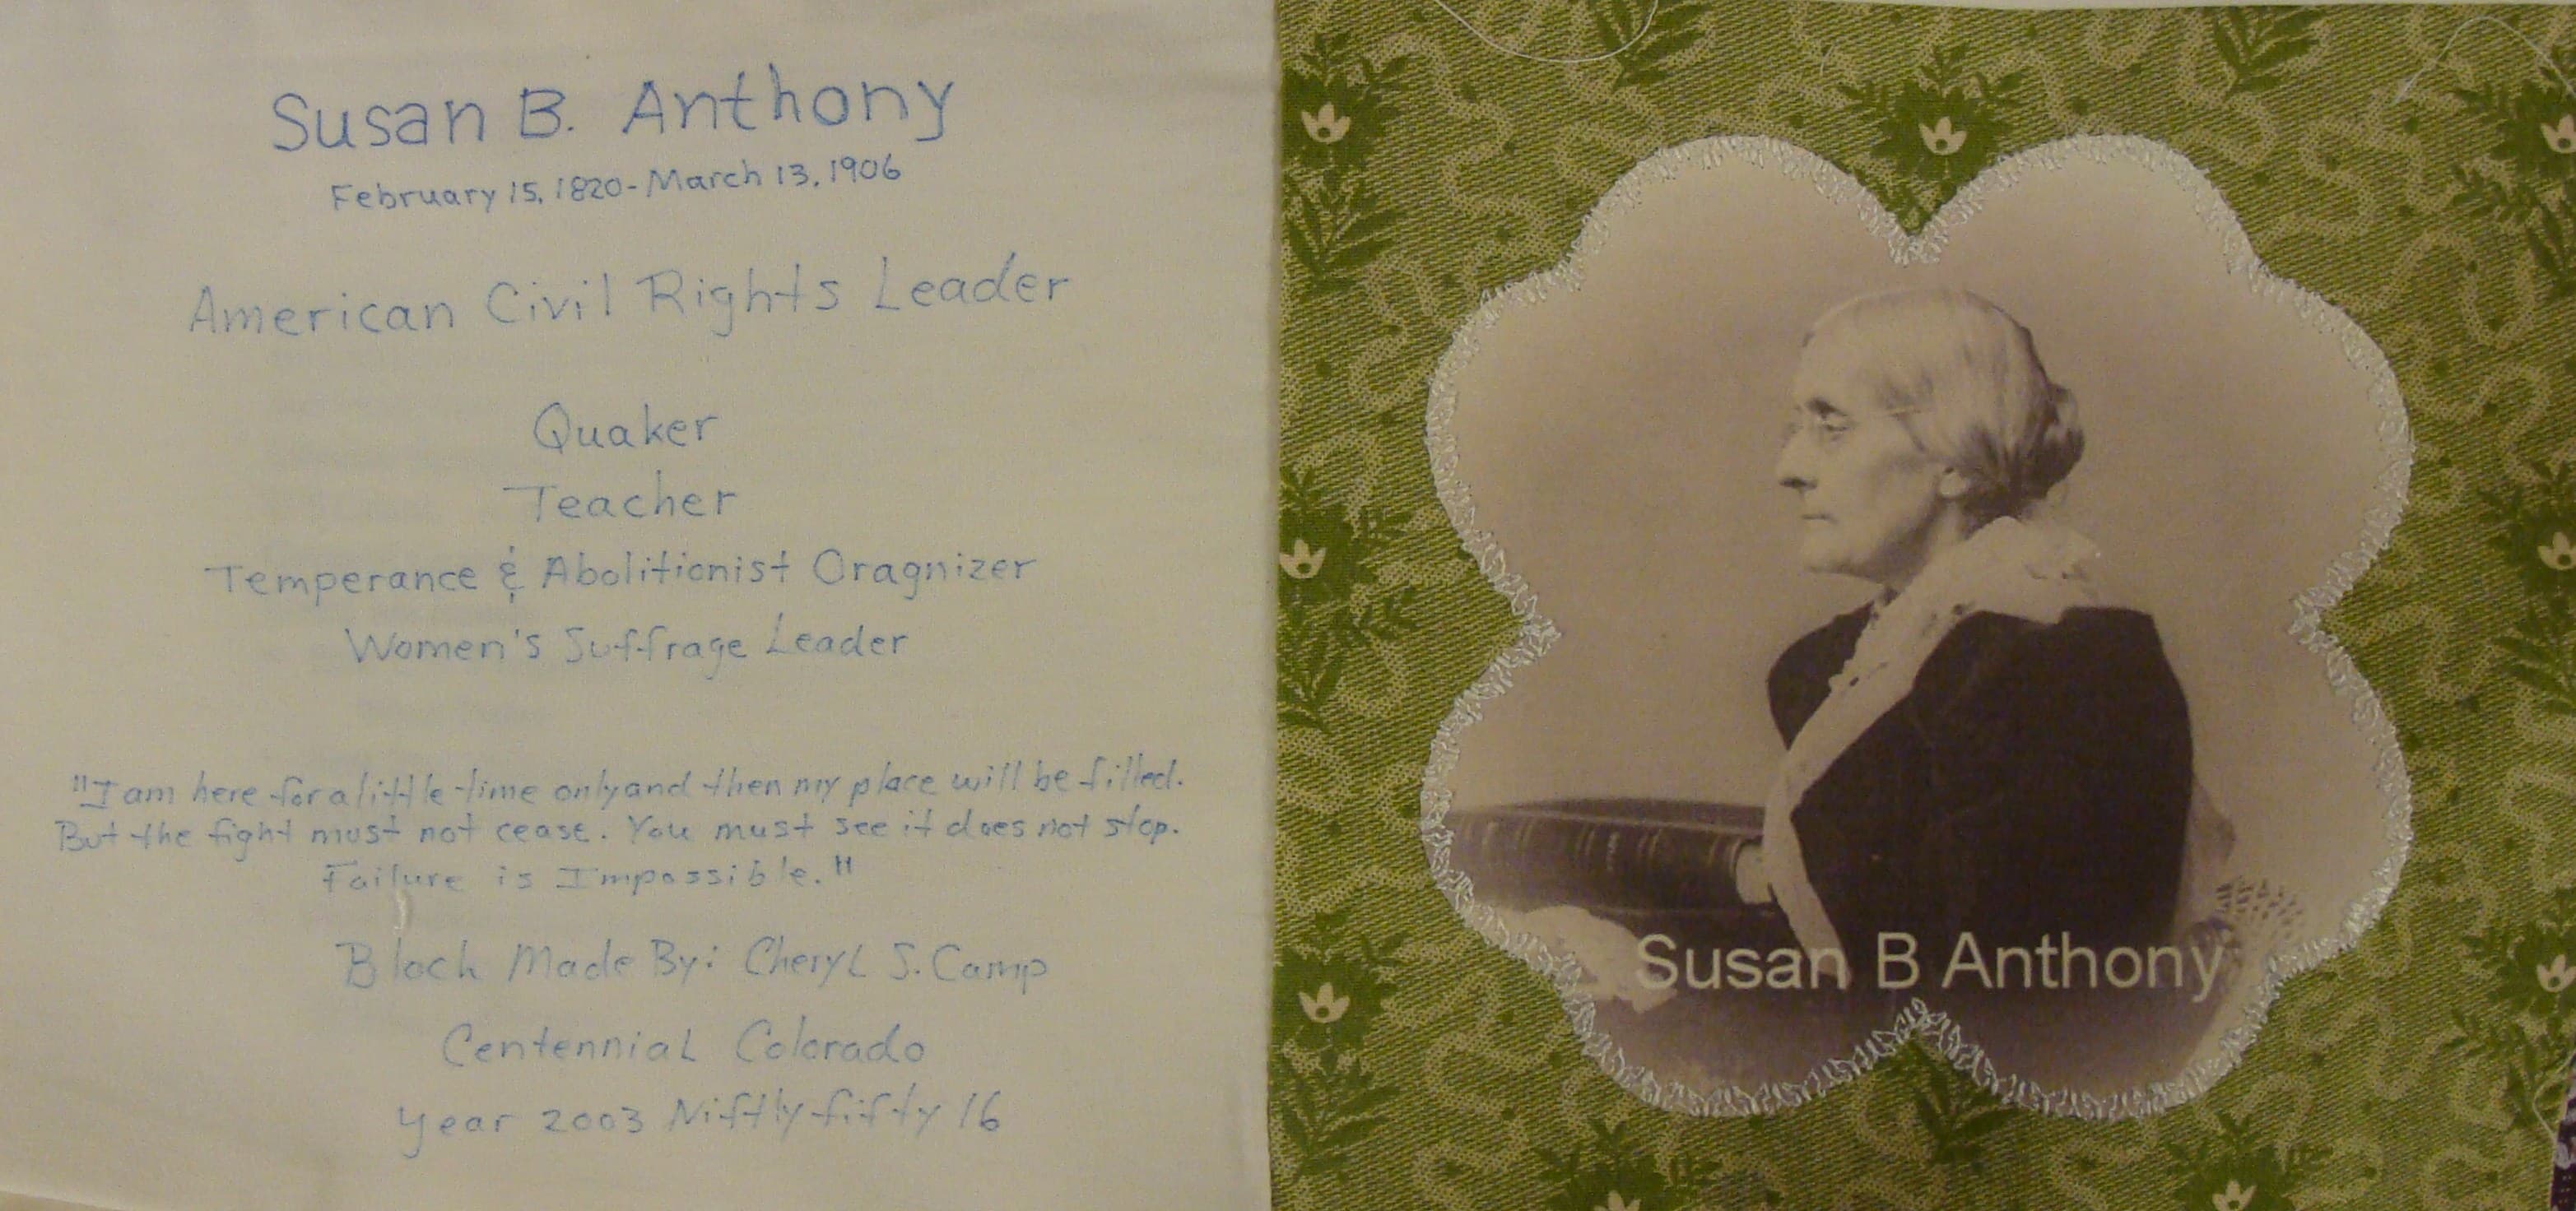 Susan B. Anthony
February 15, 1820 - March 13, 1906
American Civil Rights Leader
Quaker
Teacher
Temperance & Abolitionist Oragnizer
Women's Suffrage Leader
"I am here for a little time only and then my place will be filled.
But the fight must not cease. You must see it does not stop.
Failure is Impossible."
Block Made By: Cheryl S. Camp
Centennial Colorado
Year 2003 Niftly fifty 16
Susan B Anthony